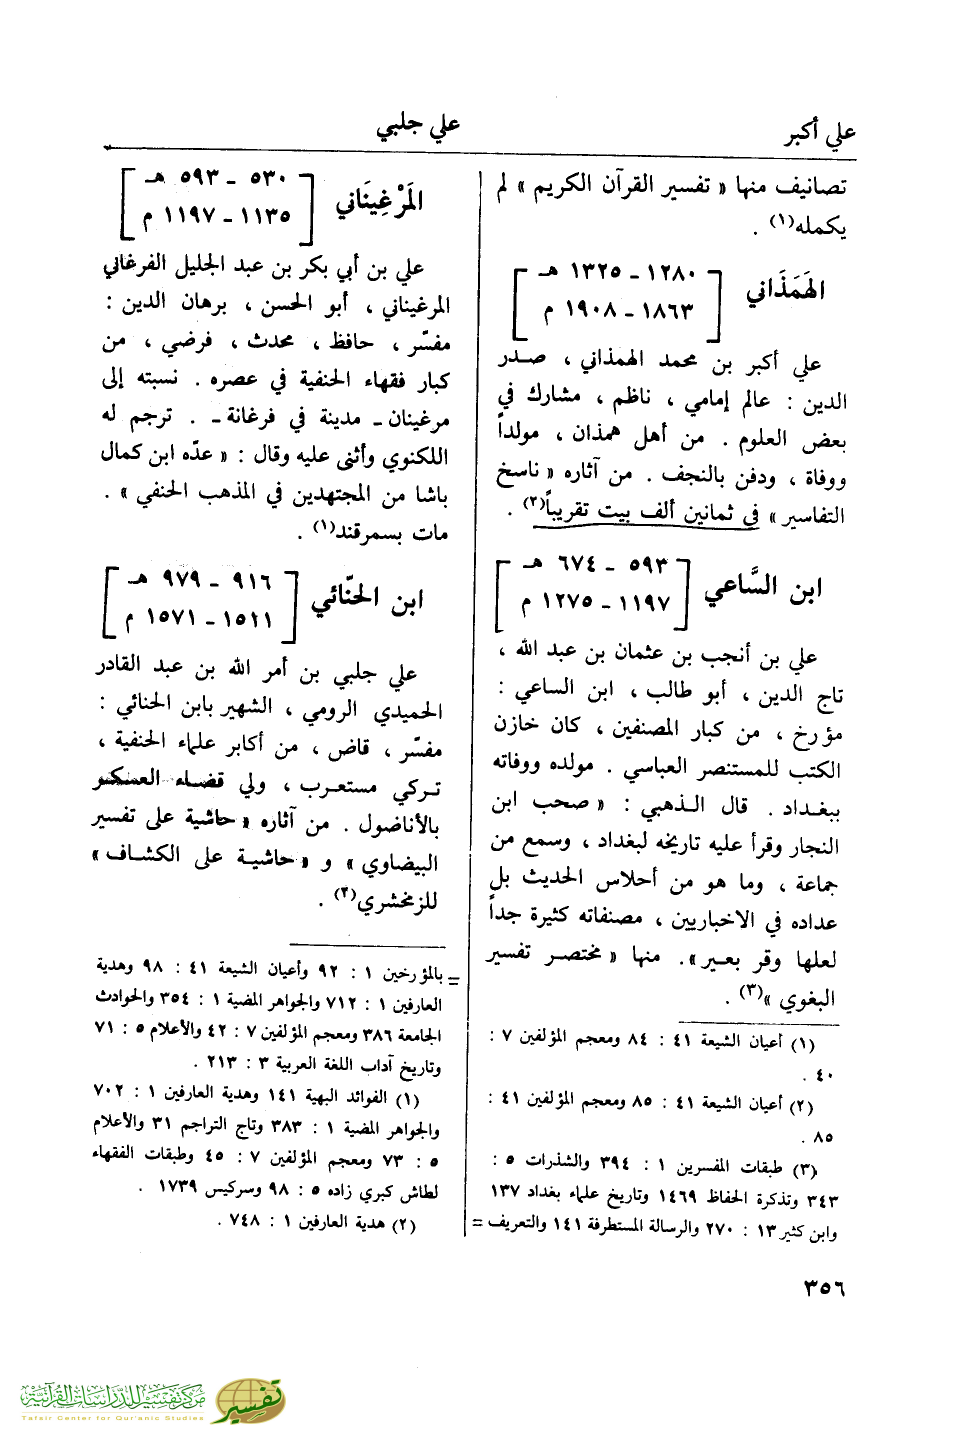 علي أكبر
علي جلبي
تصانيف منها « تفسير القرآن الكريم » لم
يكمله(١) .
الهَمَذَاني
١٢٨٠ ـ ١٣٢٥ هـ
١٨٦٣ ـ ١٩٠٨ م
علي أكبر بن محمد الهمذاني ، صدر
الدين : عالم إمامي ، ناظم ، مشارك في
بعض العلوم . من أهل همذان ، مولداً
ووفاة ، ودفن بالنجف . من آثاره « ناسخ
التفاسير » في ثمانين ألف بيت تقريباً(٢) .
ابن السَّاعي
٥٩٣ ـ ٦٧٤ هـ
١١٩٧ ـ ١٢٧٥ م
علي بن أنجب بن عثمان بن عبد الله ،
تاج الدين ، أبو طالب ، ابن الساعي :
مؤرخ ، من كبار المصنفين ، كان خازن
الكتب للمستنصر العباسي . مولده ووفاته
ببغداد . قال الذهبي : « صحب ابن
النجار وقرأ عليه تاريخه لبغداد ، وسمع من
جماعة ، وما هو من أحلاس الحديث بل
عداده في الاخباريين ، مصنفاته كثيرة جداً
لعلها وقر بعير». منها « مختصر تفسير
البغوي »(٣) .
(١) أعيان الشيعة ٤١ : ٨٤ ومعجم المؤلفين ٧ :
٤٠ .
(٢) أعيان الشيعة ٤١ : ٨٥ ومعجم المؤلفين ٤١ :
٨٥ .
(٣) طبقات المفسرين ١ : ٣٩٤ والشذرات ٥ :
٣٤٣ وتذكرة الحفاظ ١٤٦٩ وتاريخ علماء بغداد ١٣٧
وابن كثير ١٣ : ٢٧٠ والرسالة المستطرفة ١٤١ والتعريف =
المَرْغِينَاني
٥٣٠ ـ ٥٩٣ هـ
١١٣٥ ـ ١١٩٧ م
علي بن أبي بكر بن عبد الجليل الفرغاني
المرغيناني ، أبو الحسن ، برهان الدين :
مفسّر ، حافظ ، محدث ، فرضي ، من
كبار فقهاء الحنفية في عصره . نسبته إلى
مرغينان ـ مدينة في فرغانة ـ . ترجم له
اللكنوي وأثنى عليه وقال : « عدّه ابن كمال
باشا من المجتهدين في المذهب الحنفي » .
مات بسمرقند(١) .
ابن الحنّائي
٩١٦ ـ ٩٧٩ هـ
١٥١١ ـ ١٥٧١ م
علي جلبي بن أمر الله بن عبد القادر
الحميدي الرومي ، الشهير بابن الحنائي :
مفسّر ، قاض ، من أكابر علماء الحنفية ،
تركي مستعرب ، ولي قضاء العسكر
بالأناضول . من آثاره « حاشية على تفسير
البيضاوي » و « حاشية على الكشاف »
للزمخشري(٢) .
= بالمؤرخين ١ : ٩٢ وأعيان الشيعة ٤١ : ٩٨ وهدية
العارفين ١ : ٧١٢ والجواهر المضية ١ : ٣٥٤ والحوادث
الجامعة ٣٨٦ ومعجم المؤلفين ٧ : ٤٢ والأعلام ٥ : ٧١
وتاريخ آداب اللغة العربية ٣ : ٢١٣ .
(١) الفوائد البهية ١٤١ وهدية العارفين ١ : ٧٠٢
والجواهر المضية ١ : ٣٨٣ وتاج التراجم ٣١ والأعلام
٥ : ٧٣ ومعجم المؤلفين ٧ : ٤٥ وطبقات الفقهاء
لطاش كبري زاده ٥ : ٩٨ وسركيس ١٧٣٩ .
(٢) هدية العارفين ١ : ٧٤٨ .
٣٥٦
مركز تفسير للدراسات القرآنية
Tafsir Center for Qur'anic Studies
تفسير